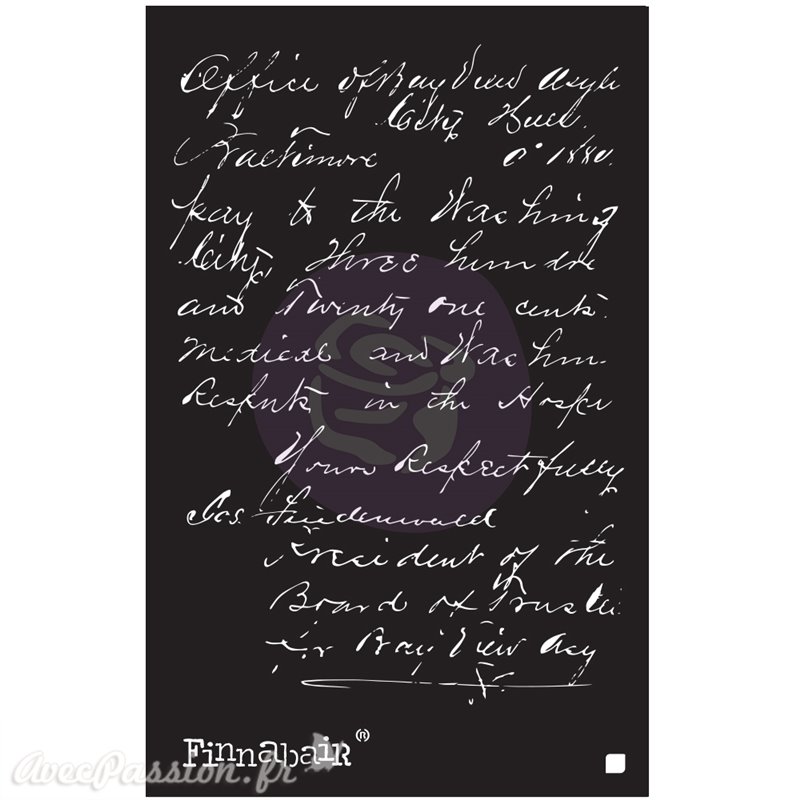 Office of Bay View Asyl
City Hall
Baltimore 1880.
pay to the Washing
City, Three hundre
and Twenty one cents.
Medical and Washin
Respects in the Hospi
Yours Respectfully
Jos. Friedenwald
President of the
Board of Trustee
for Bay View Asy
Finnabair ®
AvecPassion.fr